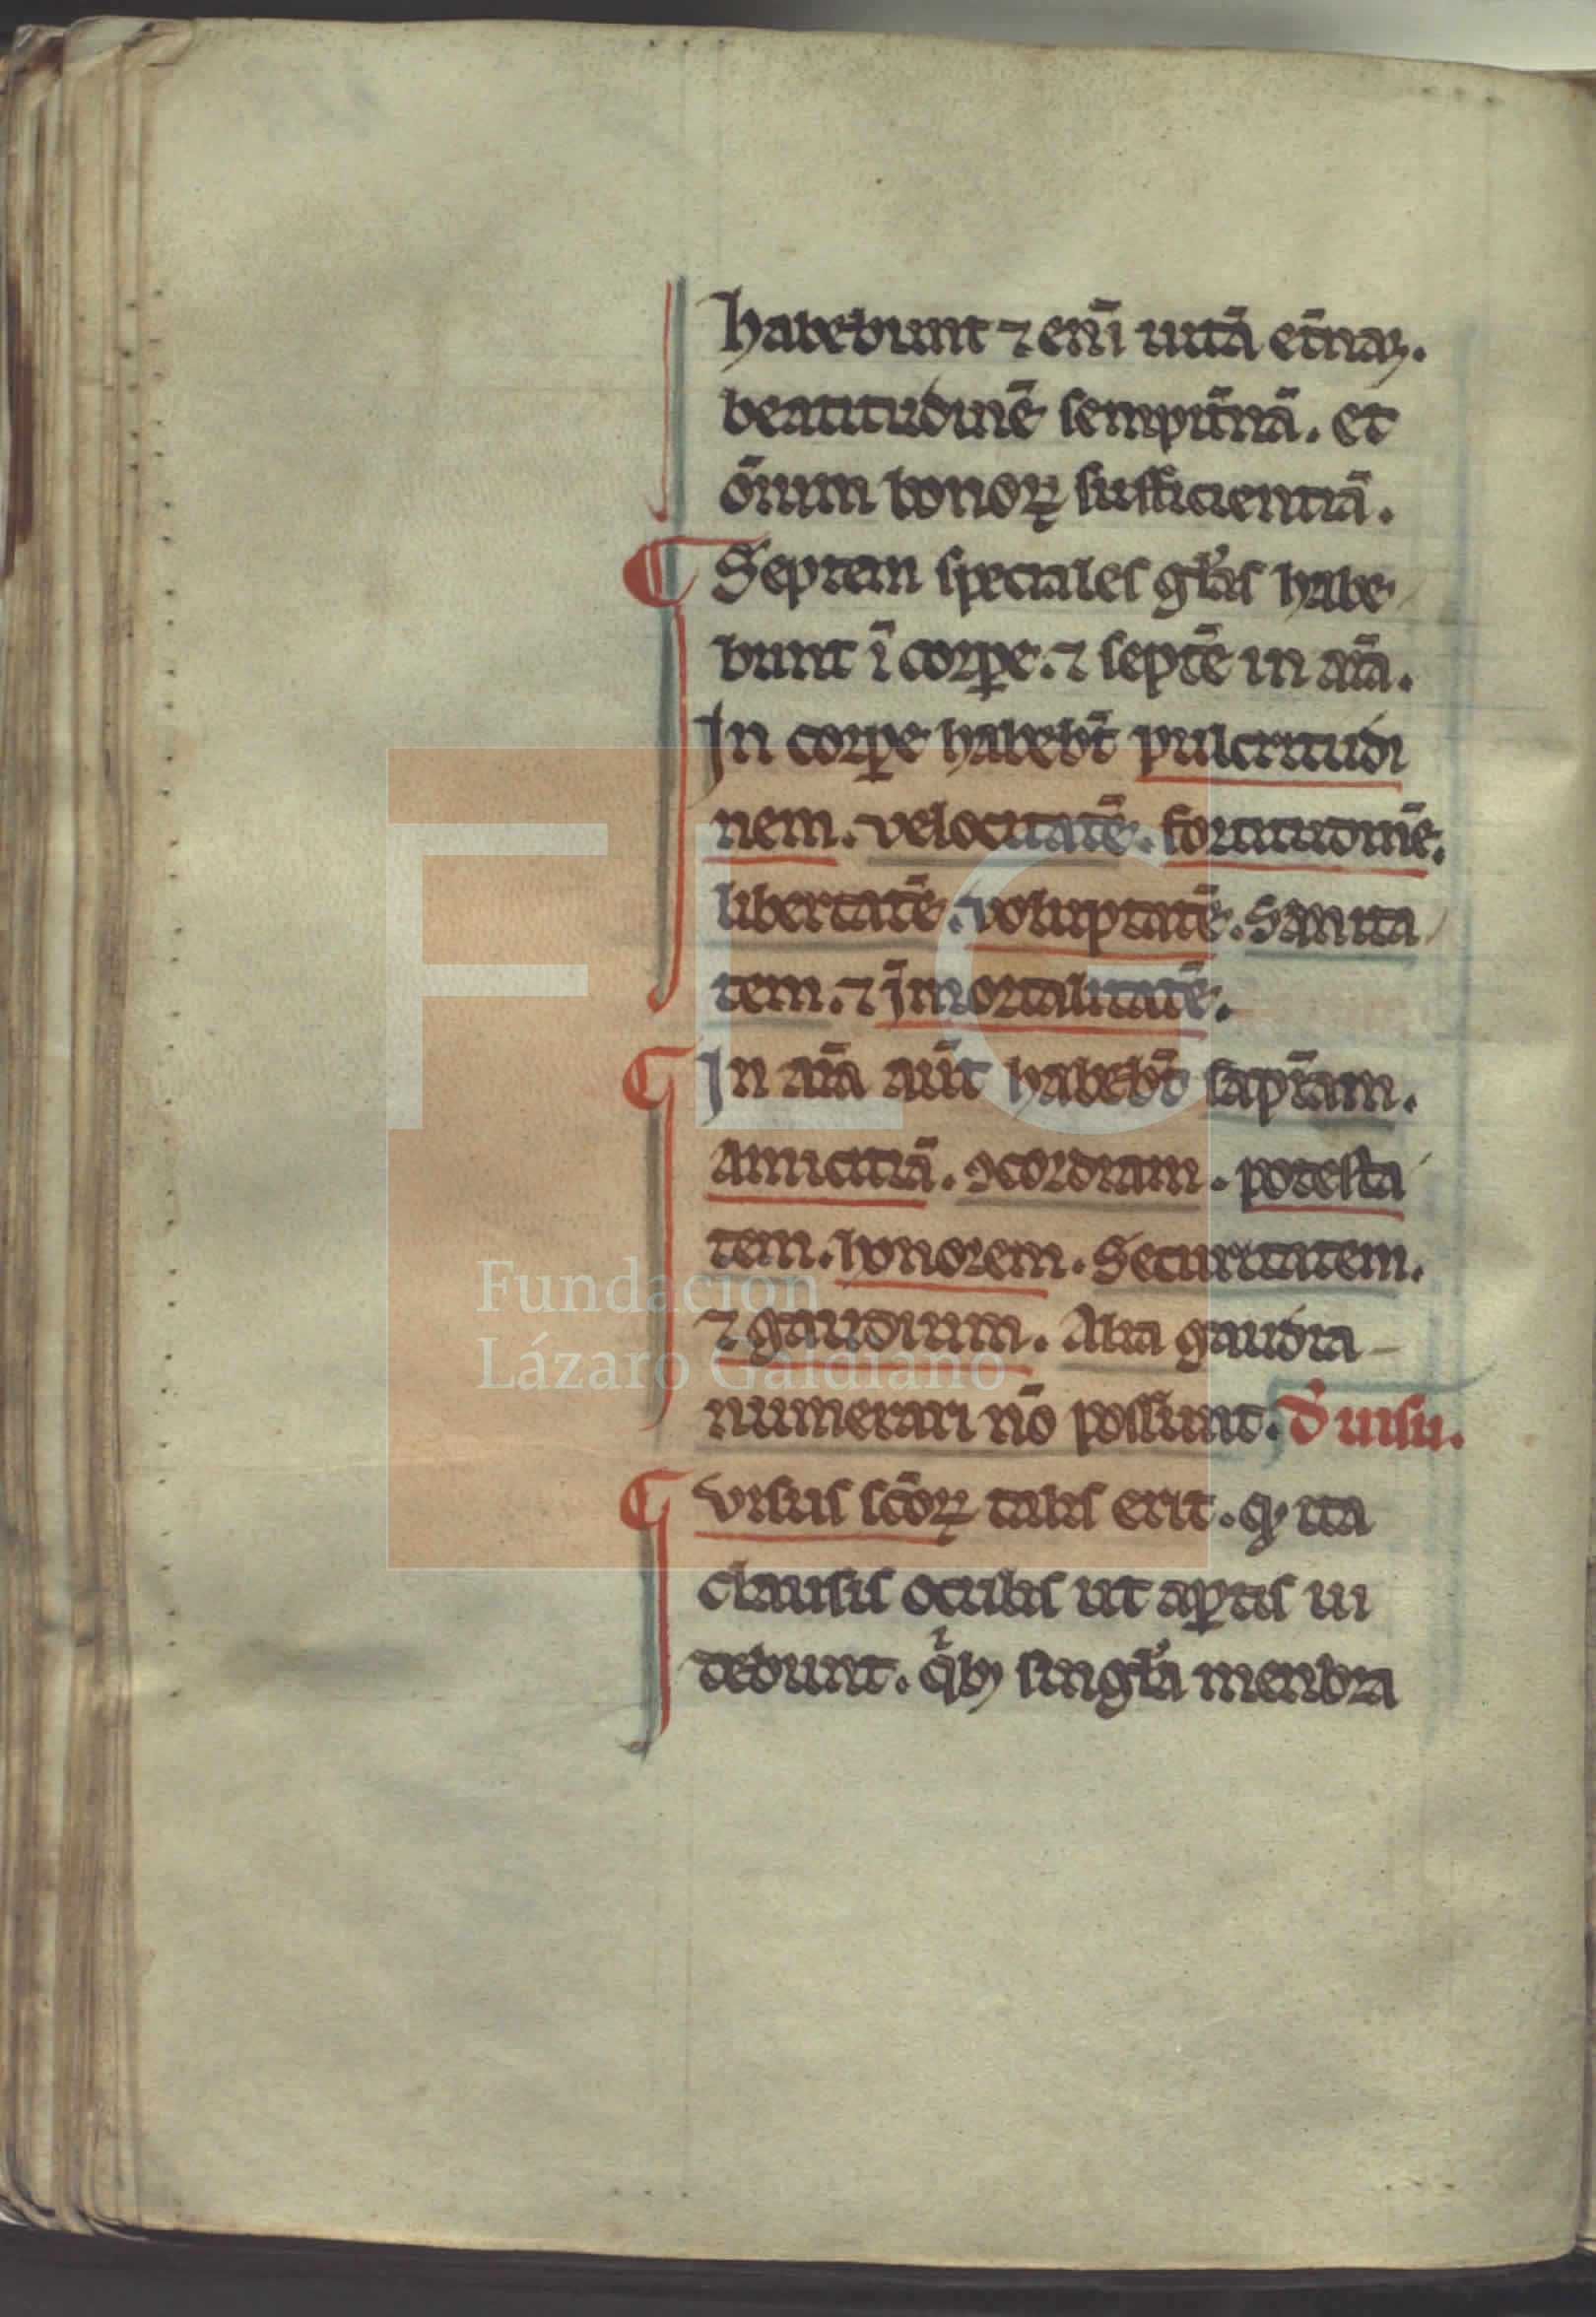 habebunt ⁊ eni̅ uitā et̅naꝫ.
beatitudinē sempit̅nā. et
o̅nium bonoꝝ sufficientiā.
¶ Septem speciales gl̕as habe
bunt i̅ corꝑe. ⁊ septē in ai̅a.
In corꝑe habebt̅ pulcritudi
nem. velocitatē. fortitudinē.
libertatē. voluptatē. Sanita
tem. ⁊ i̅mortalitatē.
¶ In ai̅a aut̅ habebt̅ sapi̅am.
Amicitiā. ꝯcordiam. potesta
tem. honorem. Securitatem.
⁊ gaudium. Alia gaudia
numerari no̅ possunt. d̕ uisu.
¶ Visus sc̅oꝝ talis erit. qͥ ita
clausis oculis ut aꝑtis ui
debunt. qͥbꝫ singl̕a menbra
FLG
Fundación
Lázaro Galdiano